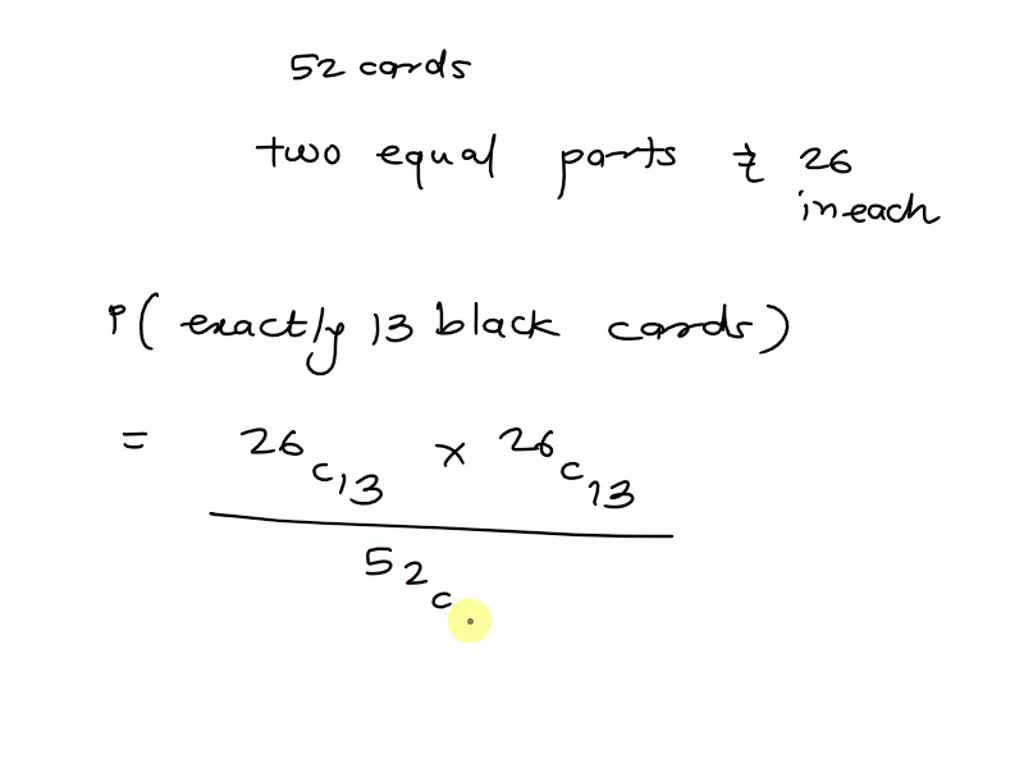 52 cards
two equal parts 26
in each
P( exactly 13 black cards)
= 26 c 13 x 26 c 13
52 c